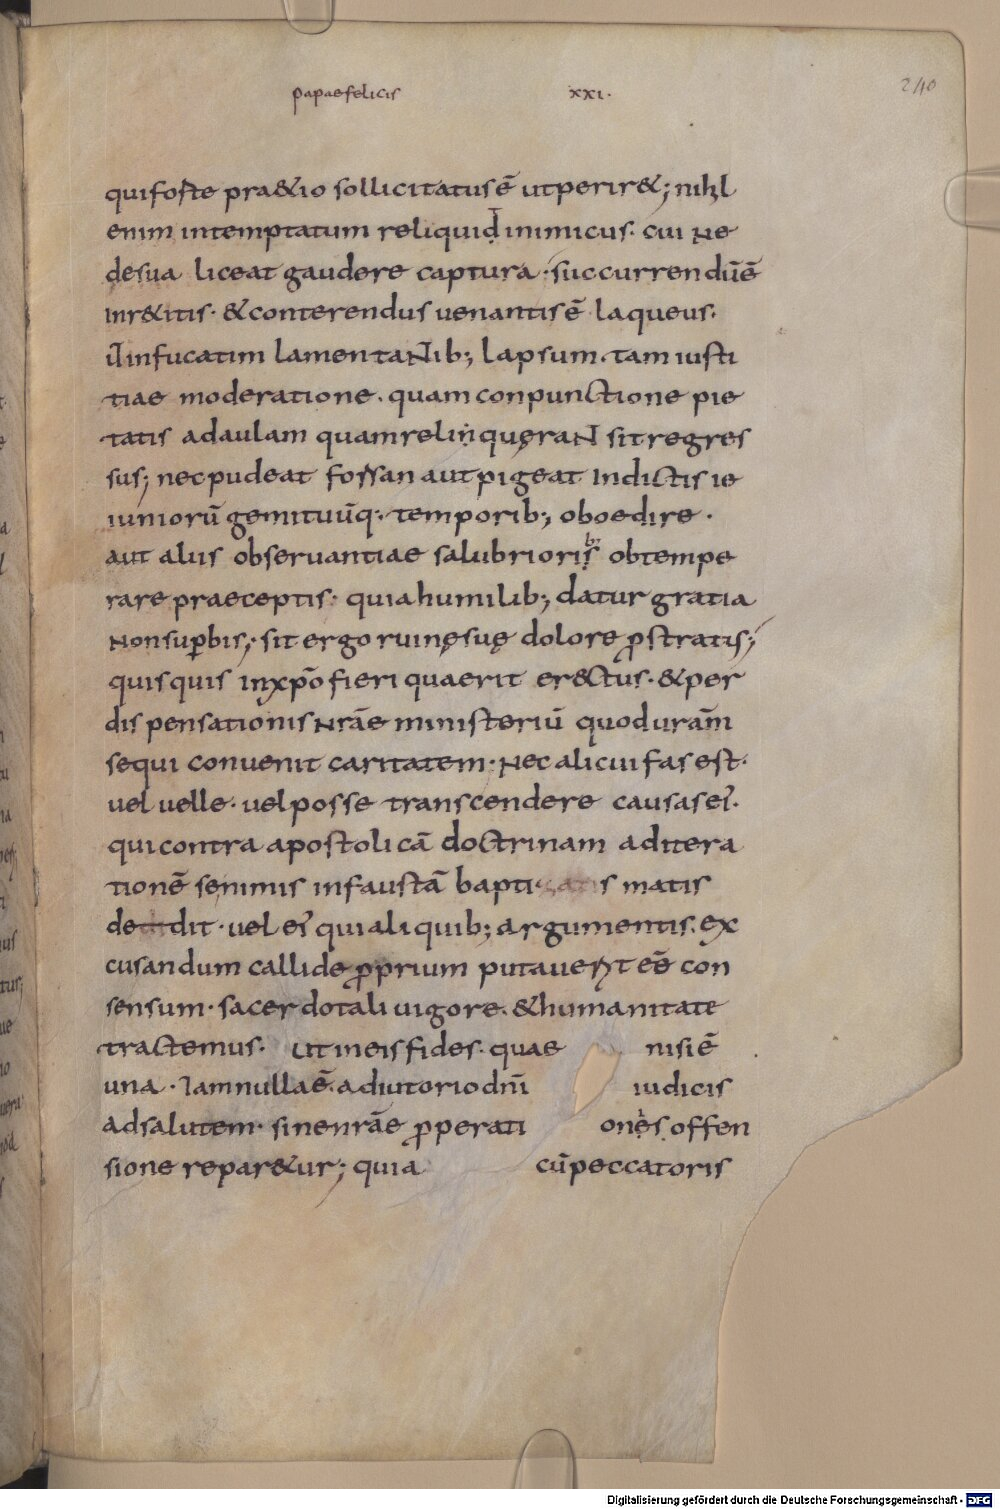 papae felicis xxi.
240
qui foste pr&aelig;&io sollicitatus ē ut perir&; nihl
enim intemptatum reliquid inimicus. cui ne
de sua liceat gaudere captura. succurrendū ē
inr&itis. & conterendus uenantis ē laqueus.
ut in fucatim lamentantib; lapsum. tam iusti
tiae moderatione. quam conpunctione pie
tatis ad aulam quam relinquęrant sit regres
sus; nec pudeat forsan aut pigeat indictis ie
iuniorū gemituūq; temporib; oboedire.
aut aliis obseruantiae salubrioribꝰ obtempe
rare praeceptis. quia humilib; datur gratia
non suꝑbis; sit ergo ruinę suę dolore ꝓstratis;
quisquis in xp̄o fieri quaerit er&ctus. & per
dispensationis nr̄ae ministeriū quod ur̄am
sequi conuenit caritatem. nec alicui fas est.
uel uelle. uel posse transcendere causas eī.
qui contra apostolicā doctrinam ad itera
tionē se nimis infaustā bapti matis
dedit. uel eī qui aliquib; argumentis. ex
cusandum callide ꝓprium putauerint eē con
sensum. sacerdotali uigore. & humanitate
tractemus. ut in eis fides. quae nisi ē
una. iam nulla ē. adiutorio dn̄i iudicis
ad salutem. sine nr̄ae ꝓperationis offen
sione repar&ur; quia cū peccatoris
Digitalisierung gefördert durch die Deutsche Forschungsgemeinschaft - DFG